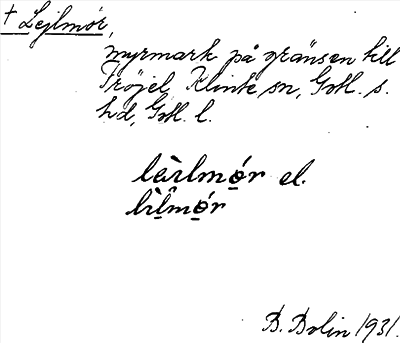 † Lejlmór,
myrmark på gränsen till
Fröjel, Klinte sn, Gotl. s.
hd, Gotl. l.
làılmo̱r el.
bìl̂mo̱r
B. Bolin 1931.